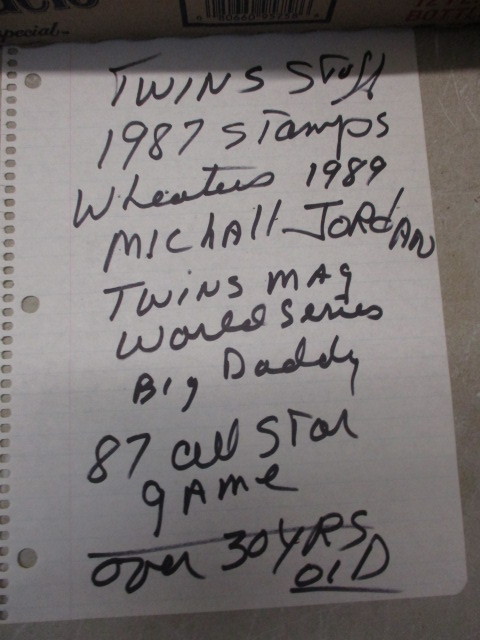 pecial
BOTT
TWINS Stuff
1987 STamps
Wheaties 1989
MIChAll JORdAN
TWINS MAg
World Series
BIg Daddy
87 all STar
gAMe
over 30 YRS
OlD